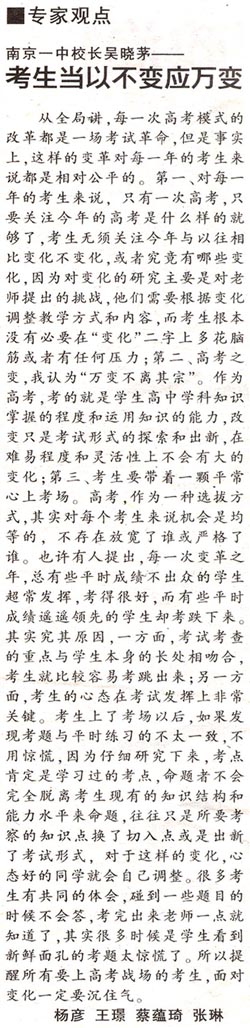 ■专家观点
南京一中校长吴晓茅——
考生当以不变应万变
从全局讲,每一次高考模式的
改革都是一场考试革命,但是事实
上,这样的变革对每一年的考生来
说都是相对公平的。第一、对每一
年的考生来说,只有一次高考,只
要关注今年的高考是什么样的就
够了,考生无须关注今年与以往相
比变化不变化,或者究竟有哪些变
化,因为对变化的研究主要是对老
师提出的挑战,他们需要根据变化
调整教学方式和内容,而考生根本
没有必要在“变化”二字上多花脑
筋或者有任何压力;第二、高考之
变,我认为“万变不离其宗”。作为
高考,考的就是学生高中学科知识
掌握的程度和运用知识的能力,改
变只是考试形式的探索和出新,在
难易程度和灵活性上不会有大的
变化;第三、考生要带着一颗平常
心上考场。高考,作为一种选拔方
式,其实对每个考生来说机会是均
等的,不存在放宽了谁或严格了
谁。也许有人提出,每一次变革之
年,总有些平时成绩不出众的学生
超常发挥,考得很好,而有些平时
成绩遥遥领先的学生却考跌下来。
其实究其原因,一方面,考试考查
的重点与学生本身的长处相吻合,
考生就比较容易考跳出来;另一方
面,考生的心态在考试发挥上非常
关键。考生上了考场以后,如果发
现考题与平时练习的不太一致,不
用惊慌,因为仔细研究下来,考点
肯定是学习过的考点,命题者不会
完全脱离考生现有的知识结构和
能力水平来命题,往往只是所要考
察的知识点换了切入点或是出新
了考试形式,对于这样的变化,心
态好的同学就会自己调整。很多考
生有共同的体会,碰到一些题目的
时候不会答,考完出来老师一点就
知道了,其实很多时候是学生看到
新鲜面孔的考题太惊慌了。所以提
醒所有要上高考战场的考生,面对
变化一定要沉住气。
杨彦 王璟 蔡蕴琦 张琳